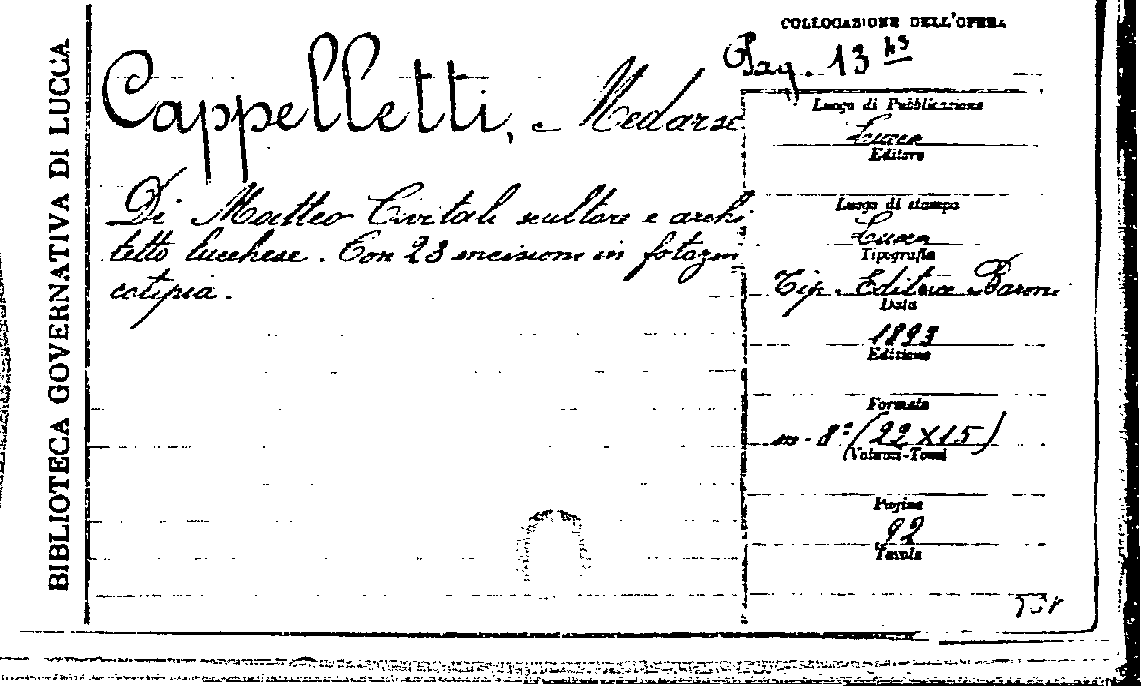 BIBLIOTECA GOVERNATIVA DI LUCCA
COLLOCAZIONE DELL'OPERA
Pag. 13 h3
Cappelletti, Medarse
Di Matteo Civitali scultore e archi
tetto lucchese. Con 23 incisioni in fotozin
cotipia.
Luogo di Pubblicazione
Lucca
Editore
Luogo di stampa
Lucca
Tipografia
Tip. Editrice Baroni
Data
1893
Edizione
Formato
in-8° (22 X 15)
Volumi-Tomi
Pagine
92
Tavole